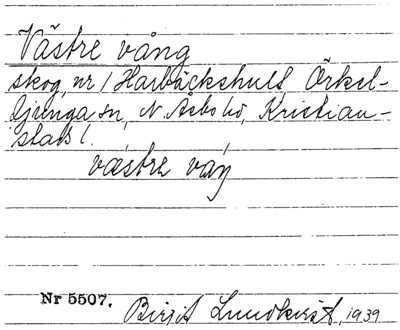 Västre vång
skog, nr 1 Harbäckshult, Örkel-
ljunga sn, N. Åsbo hd, Kristian-
stads l.
västre vaŋ
Nr 5507. Birgit Lundkvist, 1939